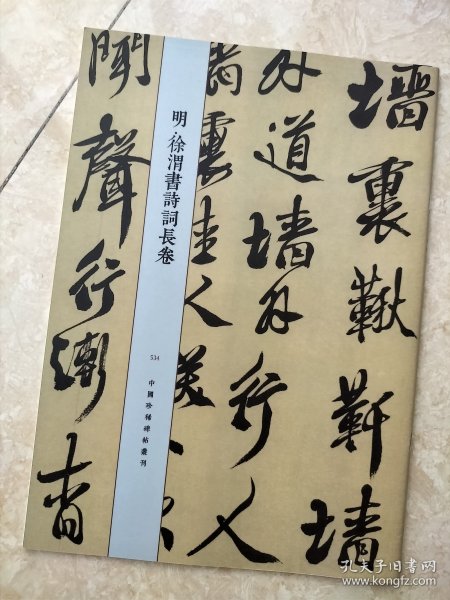 墙裏鞦韆墙
外道墙外行人
墙裏佳人笑
聞聲行漸杳
明·徐渭書詩詞長卷
534
中國珍稀碑帖叢刊
孔夫子旧书网
www.kongfz.com